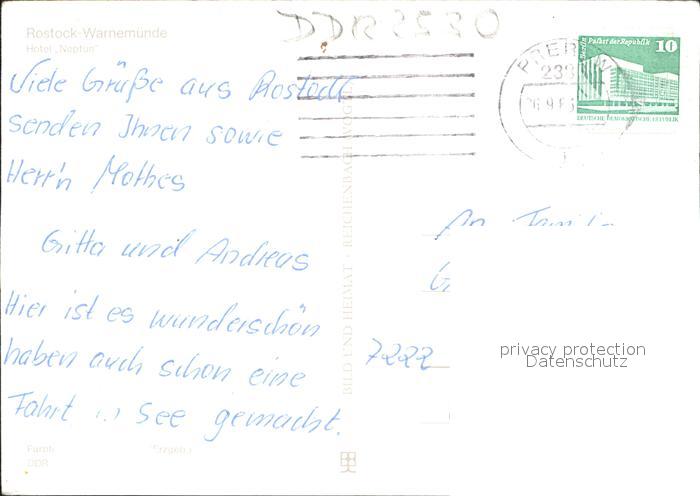 Rostock-Warnemünde
Hotel „Neptun"
DDR 3530
Viele Grüße aus Rostock
senden Ihnen sowie
Herr'n Mothes
Gitta und Andreas
Hier ist es wunderschön
haben auch schon eine
Fahrt in See gemacht.
(Erzgeb.)
DDR
BILD UND HEIMAT · REICHENBACH (VOGTL
Berlin Palast der Republik 10
DEUTSCHE DEMOKRATISCHE REPUBLIK
An Familie
7222
privacy protection
Datenschutz